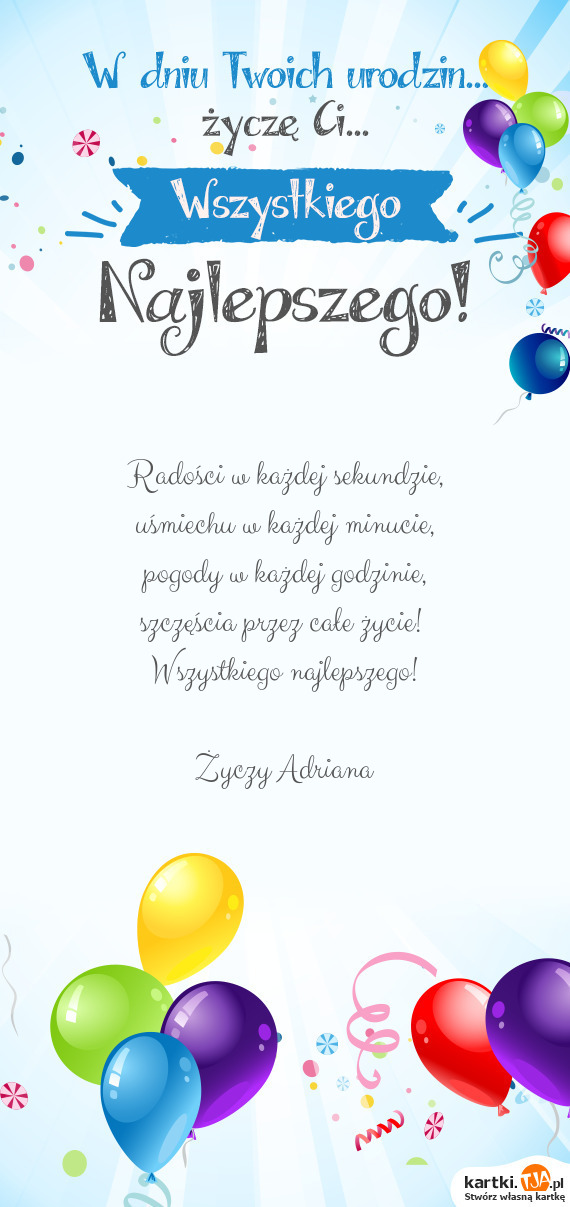 W dniu Twoich urodzin...
życzę Ci...
Wszystkiego
Najlepszego!
Radości w każdej sekundzie,
uśmiechu w każdej minucie,
pogody w każdej godzinie,
szczęścia przez całe życie!
Wszystkiego najlepszego!
Życzy Adriana
kartki.TJA.pl
Stwórz własną kartkę